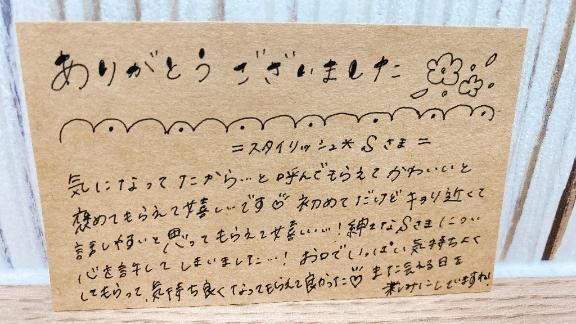 ありがとうございました
=スタイリッシュ*Sさま=
気になってたから…と呼んでもらえてかわいいと
褒めてもらえて嬉しいです♡初めてだけどキョリ近くて
話しやすいと思ってもらえて嬉しいい…!紳士なSさまについ
心を許してしまいました…!お口でいっぱい気持ちよく
してもらって、気持ち良くなってもらえて良かった♡また会える日を
楽しみにしてますね!